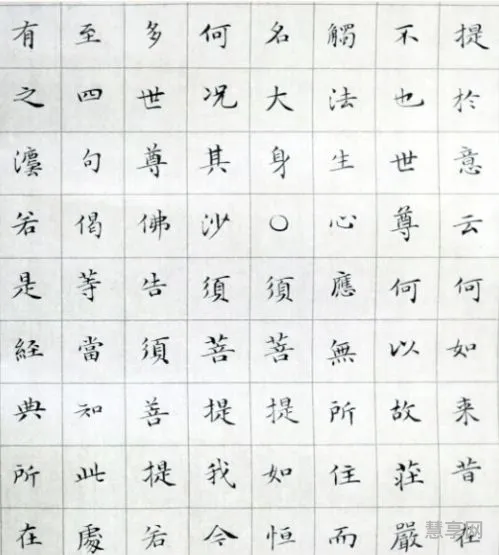 提於意云何如来昔在
不也世尊何以故莊嚴
觸法生心應無所住而
名大身〇須菩提如恒
何况其沙須菩提我今
多世尊佛告須菩提若
至四句偈等當知此處
有之若是經典所在
慧享网